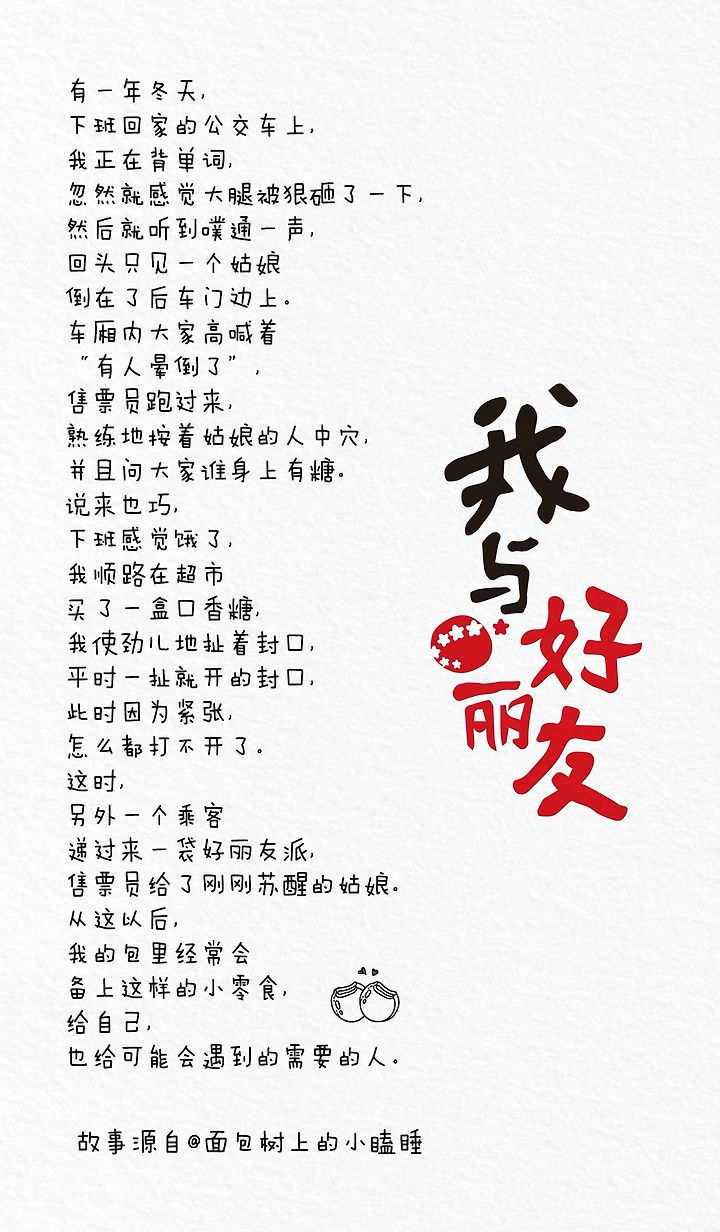 有一年冬天,
下班回家的公交车上,
我正在背单词,
忽然就感觉大腿被狠砸了一下,
然后就听到噗通一声,
回头只见一个姑娘
倒在了后车门边上。
车厢内大家高喊着
“有人晕倒了”,
售票员跑过来,
熟练地按着姑娘的人中穴,
并且问大家谁身上有糖。
说来也巧,
下班感觉饿了,
我顺路在超市
买了一盒口香糖,
我使劲儿地扯着封口,
平时一扯就开的封口,
此时因为紧张,
怎么都打不开了。
这时,
另外一个乘客
递过来一袋好丽友派,
售票员给了刚刚苏醒的姑娘。
从这以后,
我的包里经常会
备上这样的小零食,
给自己,
也给可能会遇到的需要的人。
我与
好丽友
故事源自@面包树上的小瞌睡